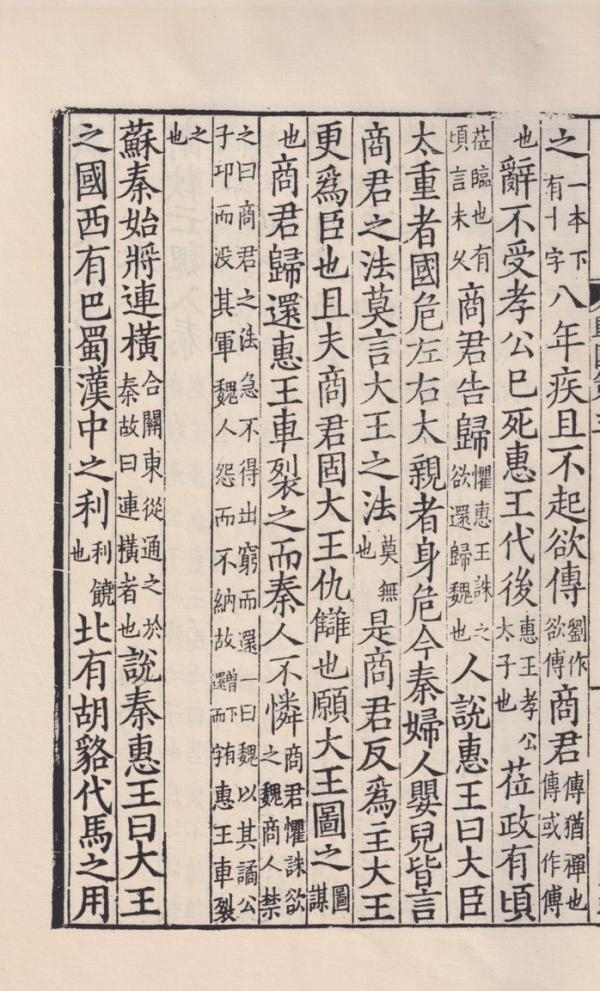 之一本下有十字八年疾且不起欲傳劉作欲傳商君傳猶禪也傳或作傅
也辭不受孝公已死惠王代後惠王孝公太子也莅政有頃
莅臨也有頃言未久商君告歸懼惠王誅之欲還歸魏也人說惠王曰大臣
太重者國危左右太親者身危今秦婦人嬰兒皆言
商君之法莫言大王之法莫無也是商君反爲主大王
更爲臣也且夫商君固大王仇讎也願大王圖之圖謀
也商君歸還惠王車裂之而秦人不憐商君懼誅欲之魏商人禁
之曰商君之法急不得出窮而還一曰魏以其譎公子卭而没其軍魏人怨而不納故還而惠王車裂
之也
蘇秦始將連橫合關東從通之於秦故曰連橫者也說秦惠王曰大王
之國西有巴蜀漢中之利利饒也北有胡貉代馬之用